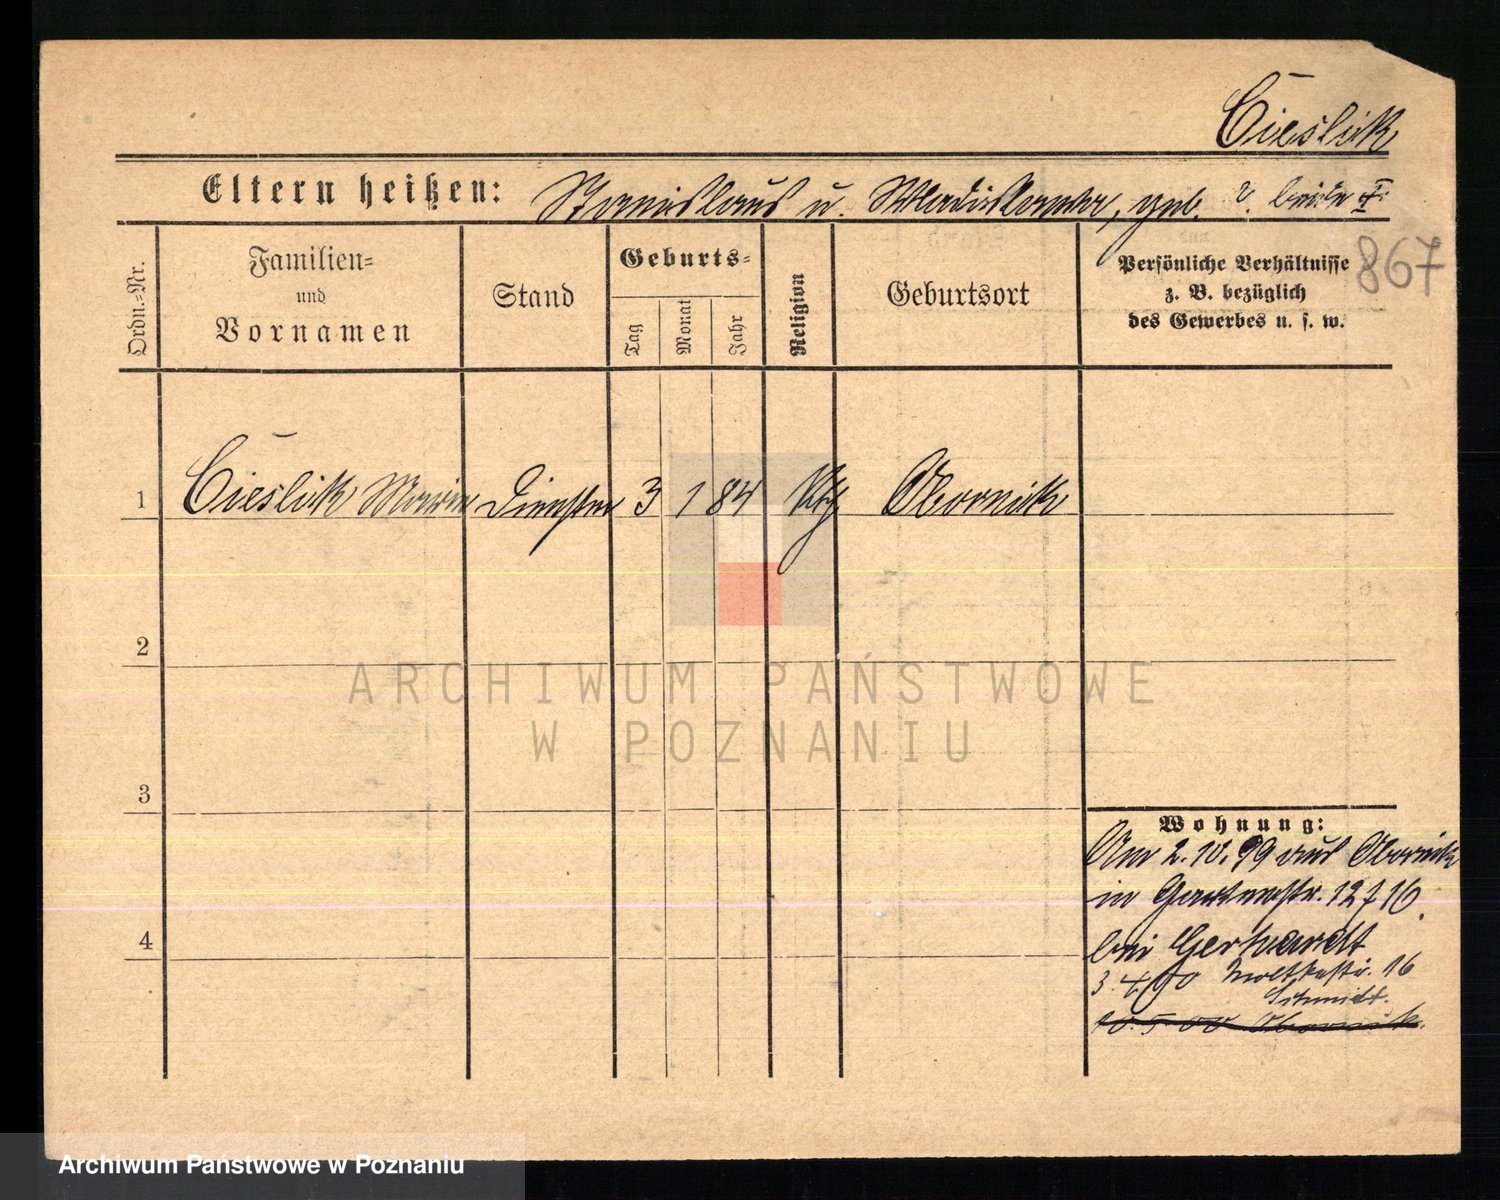 Cieslik
Eltern heißen: Stanislaus u. Wladislawa, geb. ?. beide †.
867
Ordn.=Nr.
Familien=
und
Vornamen
Stand
Geburts=
Tag
Monat
Jahr
Religion
Geburtsort
Persönliche Verhältnisse
z. B. bezüglich
des Gewerbes u. s. w.
1 Cieslik Marie 3 1 84 Kth Obornik
2
ARCHIWUM PAŃSTWOWE
W POZNANIU
3
Wohnung:
Am 2.10.99 aus Obornik
in Gartenstr. 12
4
bei Gerhardt
3.4.00 Moltkestr. 16
Schmidt.
10.5.00 Obornik.
Archiwum Państwowe w Poznaniu